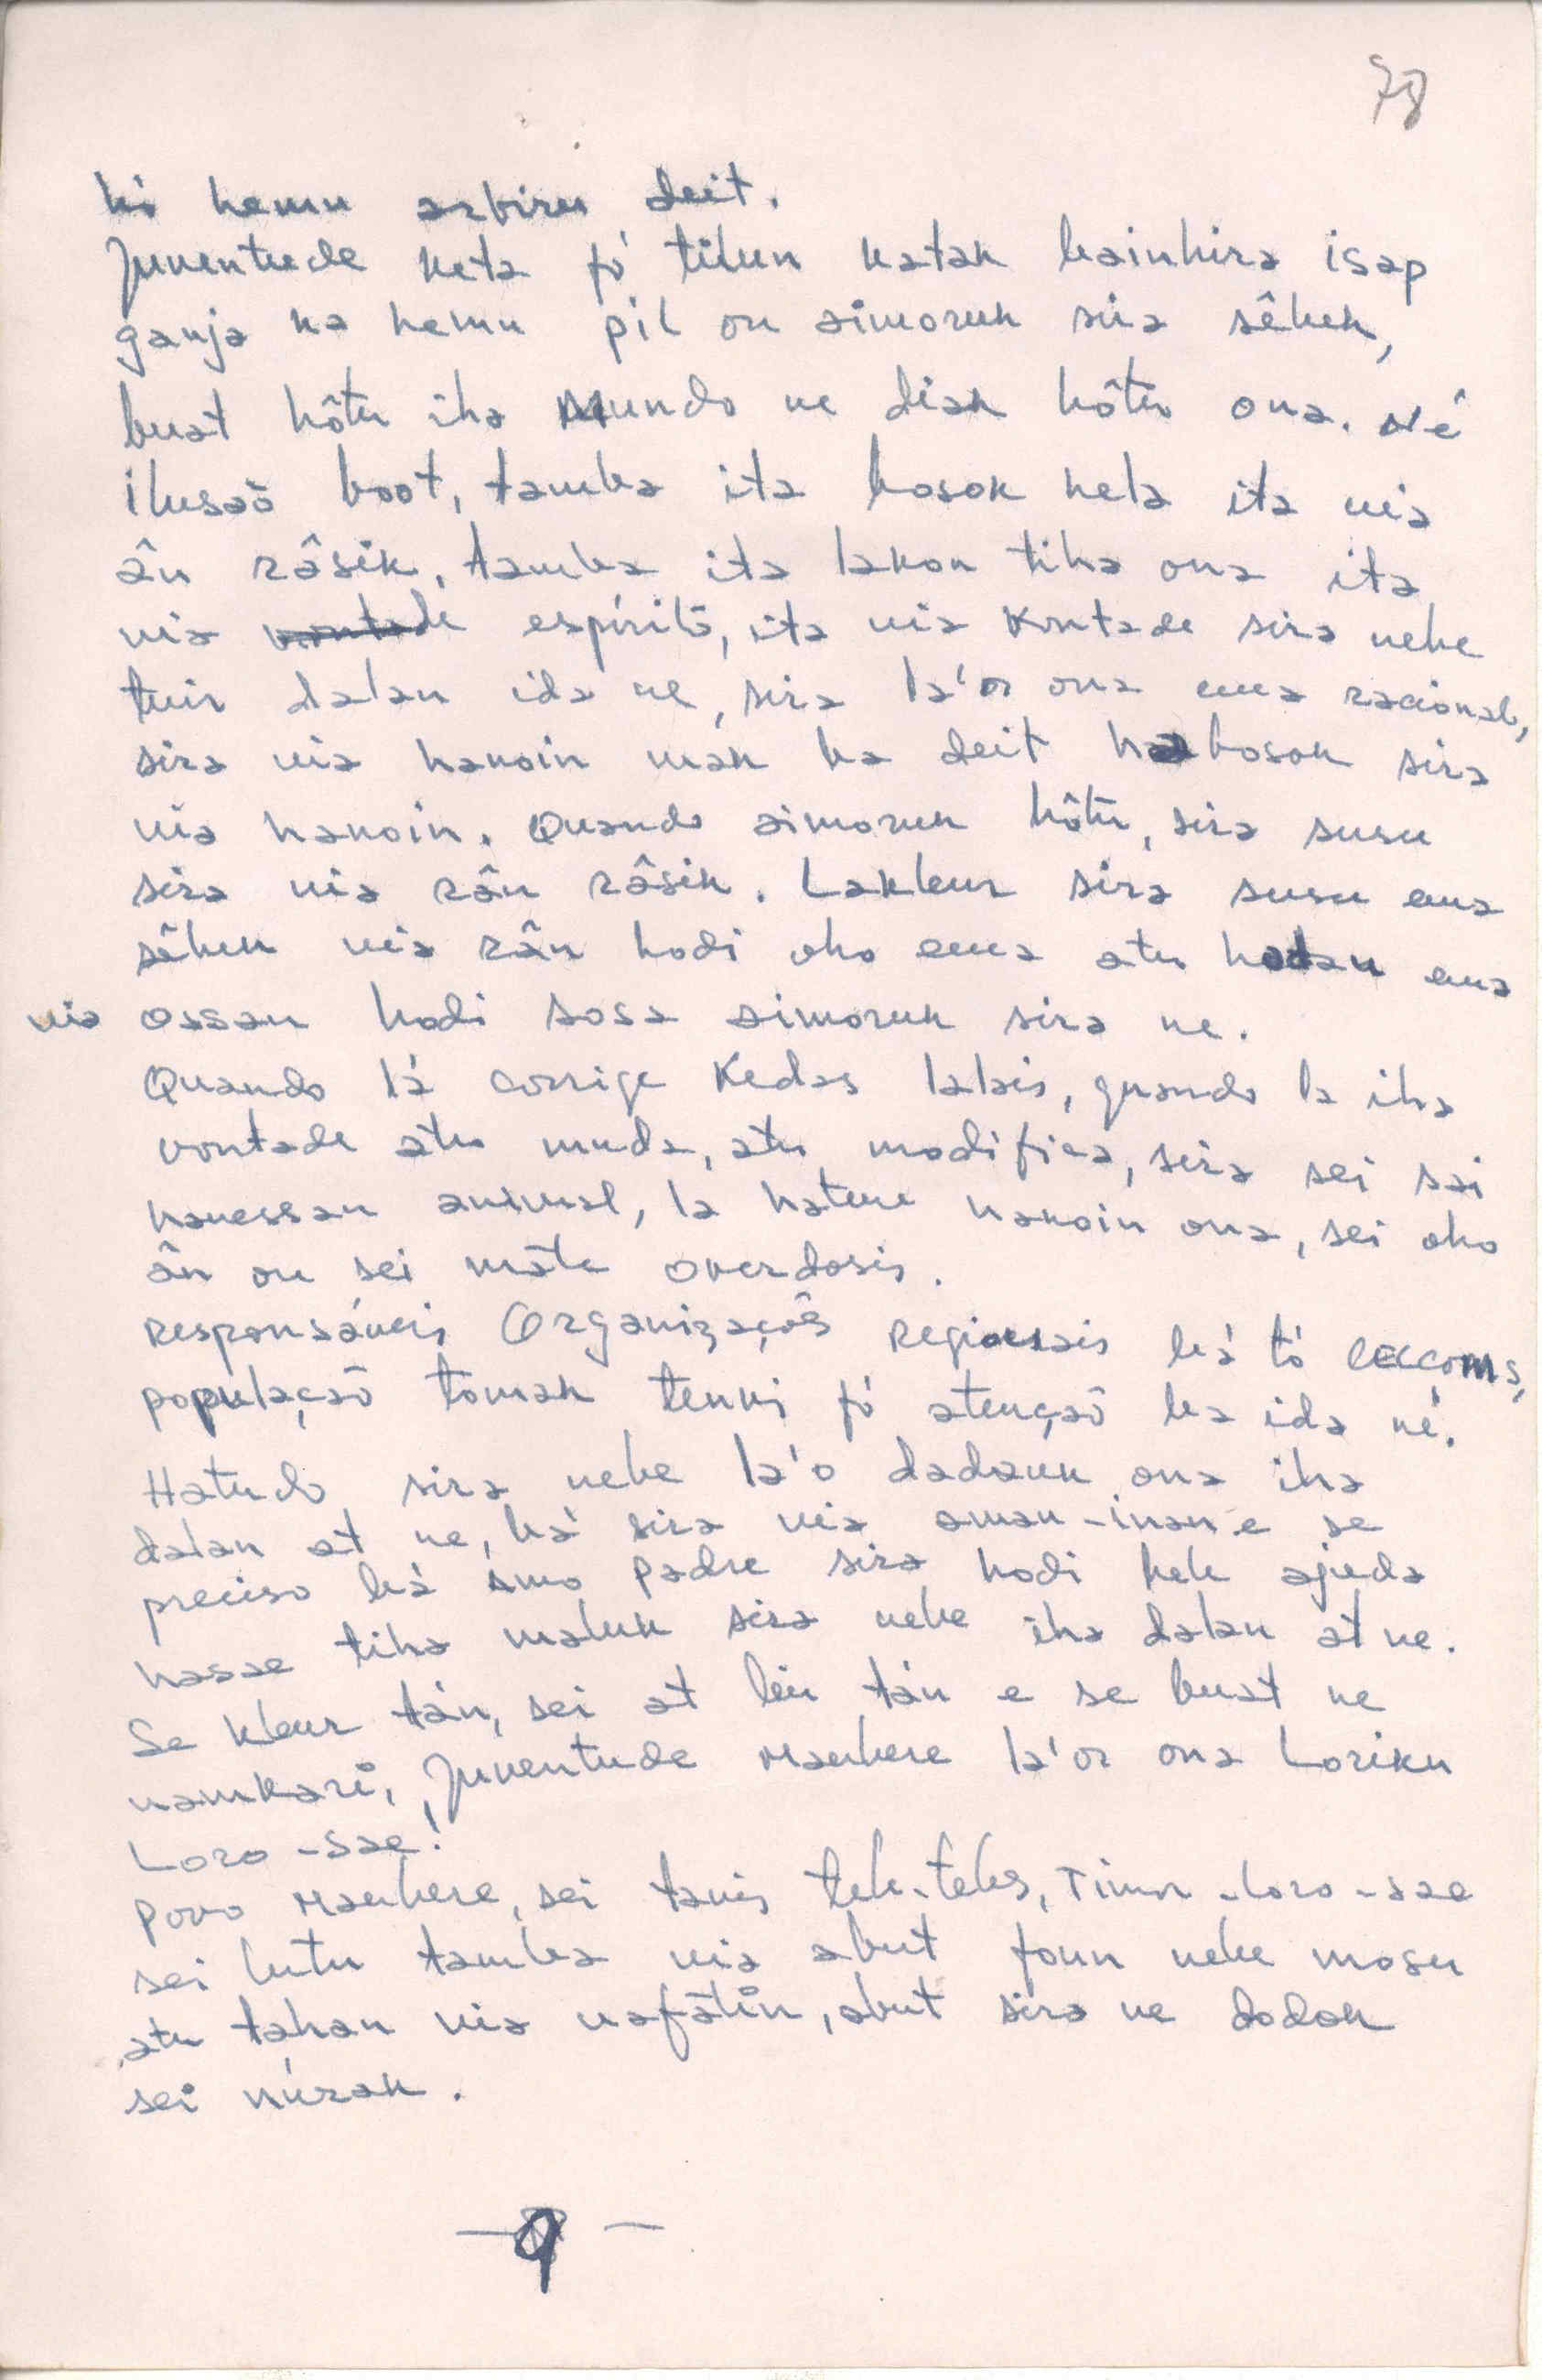 78
hemu arbiru deit.
Juventude keta fó tilun katak bainhira isap
ganja ka hemu pil ou aimoruk sira sêluk,
buat hôtu iha Mundo ne diak hôtu ona. Né
ilusaõ boot, tamba ita bosok hela ita nia
ân râsik, tamba ita lakon tiha ona ita
nia vontade espíritõ, ita nia Kontade sira nebe
tuir dalan ida ne, sira la'ós ona ema racional,
sira nia hanoin mak ba deit haboson sira
nia hanoin. Quando aimoruk hôtu, sira susu
sira nia rân râsik. Lakleur sira susu ema
sêluk nia rân hodi oho ema atu hadau ema
nia ossan hodi sosa aimoruk sira ne.
Quando lá corrige Kedas lalais, quando la iha
vontade atu muda, atu modifica, sira sei sai
hanessan animal, la hatene hanoin ona, sei oho
ân ou sei mâte overdosis.
Responsáveis Organizaçoẽs Regionais bá tó ceccoms,
populaçaõ tomak tenki fó atençaõ ba ida né.
Hatudo sira nebe la'o dadauk ona iha
dalan at ne, bá sira nia aman-inan e se
preciso bá amo padre sira hodi bele ajuda
hasae tiha maluk sira nebe iha dalan at ne.
Se kleur tán, sei at liu tán e se buat ne
namkari, Juventude Maubere la'os ona Loriku
Loro-sae!
Povo Maubere, sei tanis tebe-tebes, Timor-loro-sae
sei lutu tamba nia abut foun nebe mosu
atu tahan nia nafâtin, abut sira ne dodok
sei núrak.
9